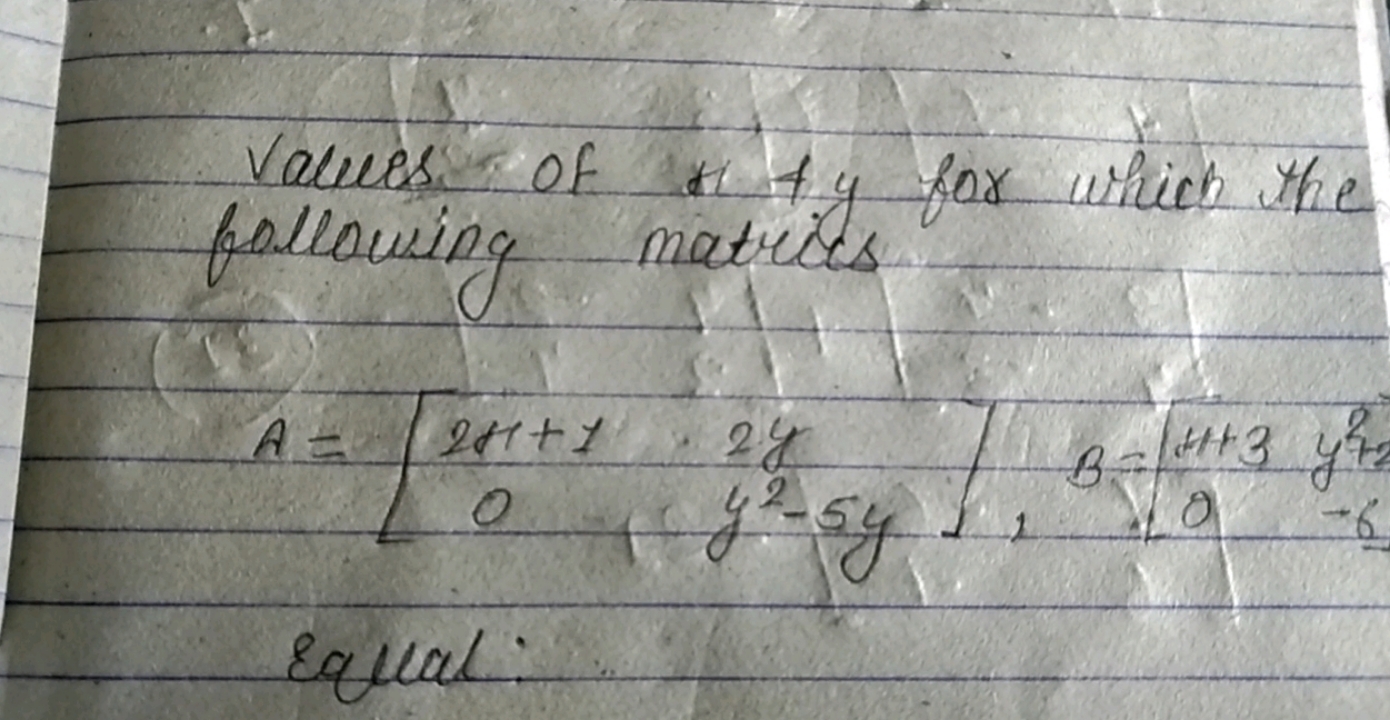 Values of x & y for which the
following matrics
A = [2x+1 2y
0 y²-5y], B = [x+3 y²+2
0 -6
Equal: